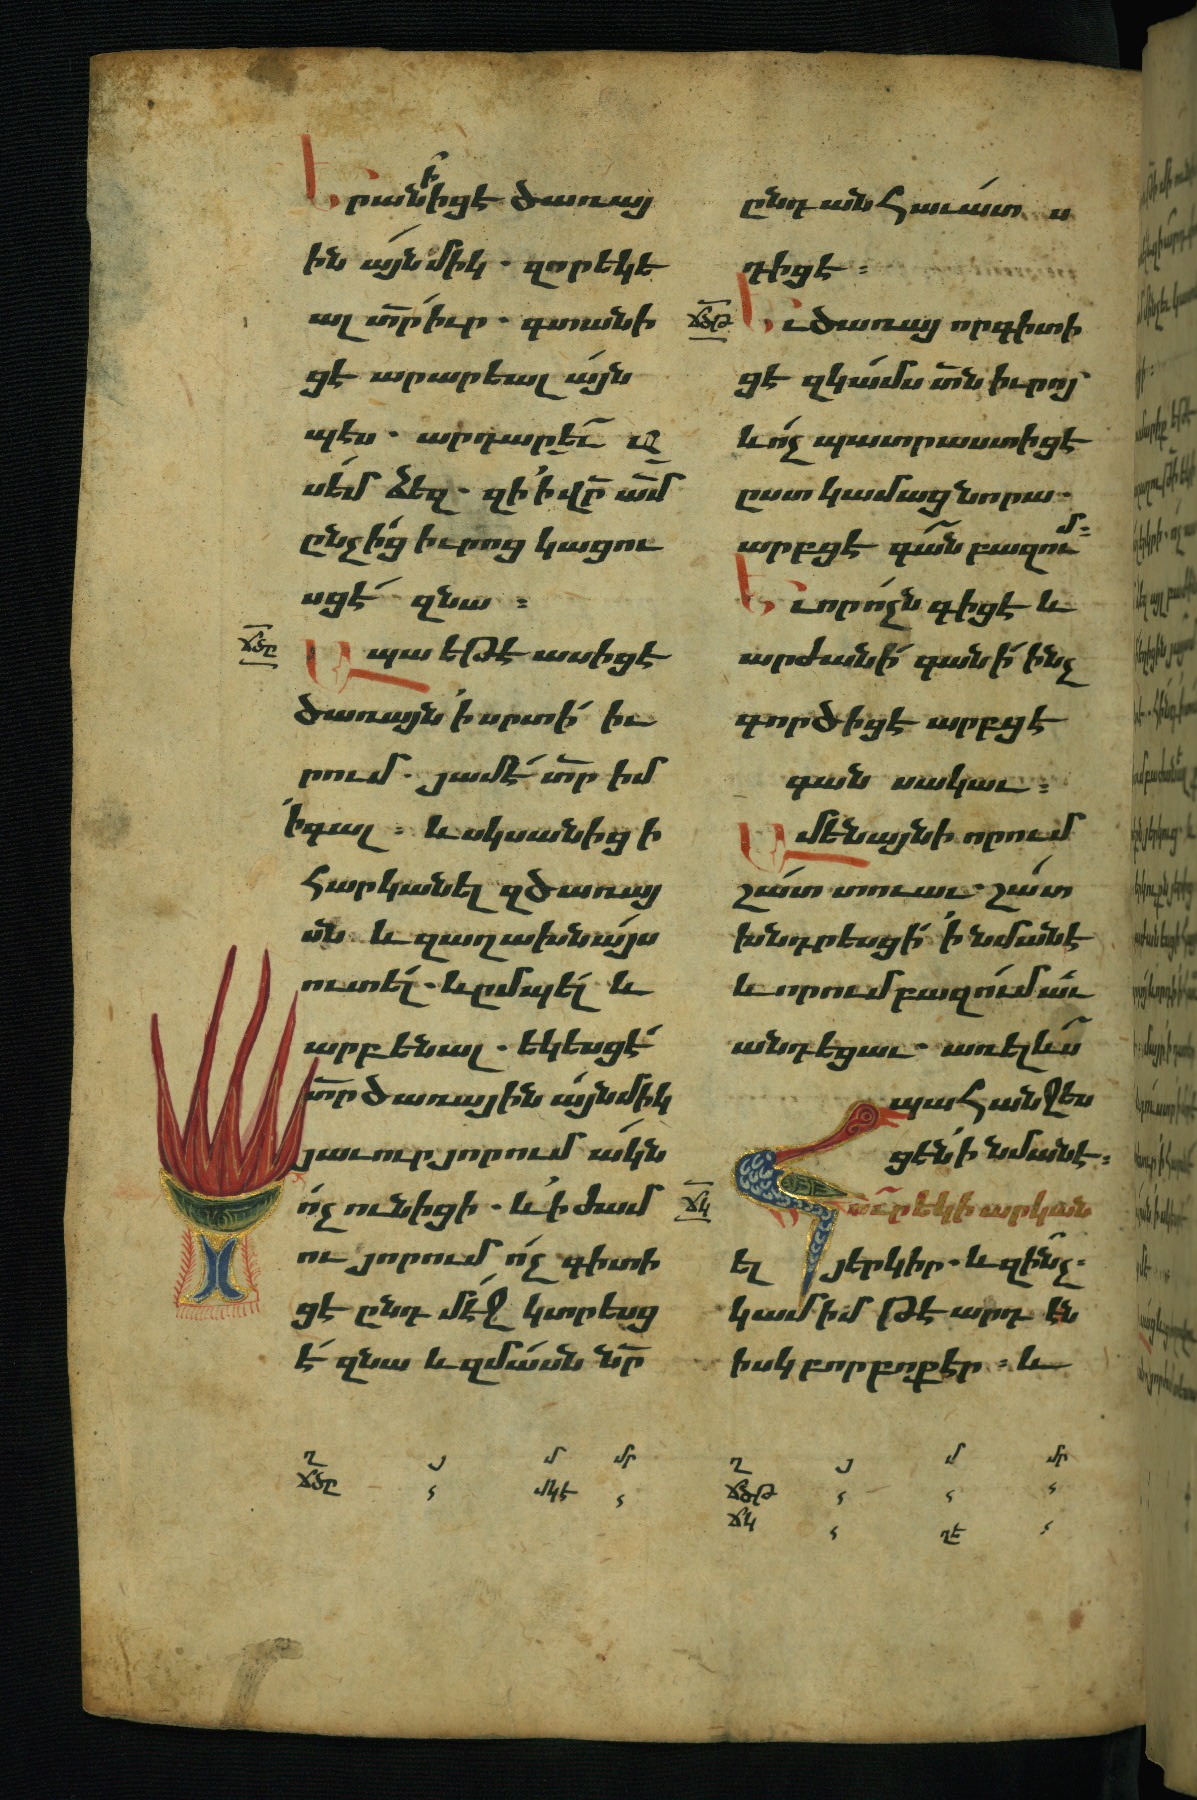 Երանի իցէ ծառայ
ին այնմիկ. զոր եկե
ալ տր իւր. գտանի
ցէ արարեալ այն
պէս. արդարեւ ա
սեմ ձեզ. զի ի վր ամ
ընչից իւրոց կացու
սցէ զնա:
ճծը
Ապա եթէ ասիցէ
ծառայն ի սրտի իւ
րում. յամէ տր իմ
ի գալ: և սկսանիցի
հարկանել զծառայ
սն և զաղախնայս
ուտել. և ըմպել և
արբենալ. եկեսցէ
տր ծառային այնմիկ
յաւուր յորում ակն
ոչ ունիցի. և ի ժամ
ու յորում ոչ գիտի
ցէ ընդ մէջ կտրեսց
է զնա և զմասն նր
ընդ անհաւատս
դիցէ:
ճծթ
Եւ ծառայ որ գիտի
ցէ զկամս տն իւրոյ
և ոչ պատրաստիցէ
ըստ կամաց նորա.
արբցէ գան բազում:
Եւ որ ոչն գիցէ և
արժանի գանի ինչ
գործիցէ արբցէ
գան սակաւ:
Ամենայնի որում
շատ տուաւ. շատ
խնդրեսցի ի նմանէ
և որում բազում աւ
անդեցաւ. առելևս
պահանջես
ցեն ի նմանէ:
ճկ
Հուր եկի արկան
ել յերկիր. և զինչ.
կամ իմ թէ արդ էն
իսկ բորբոքէր: և
ղ յ մ մր
ճծը մկէ
ղ յ մ մր
ճծթ
ճկ ղէ